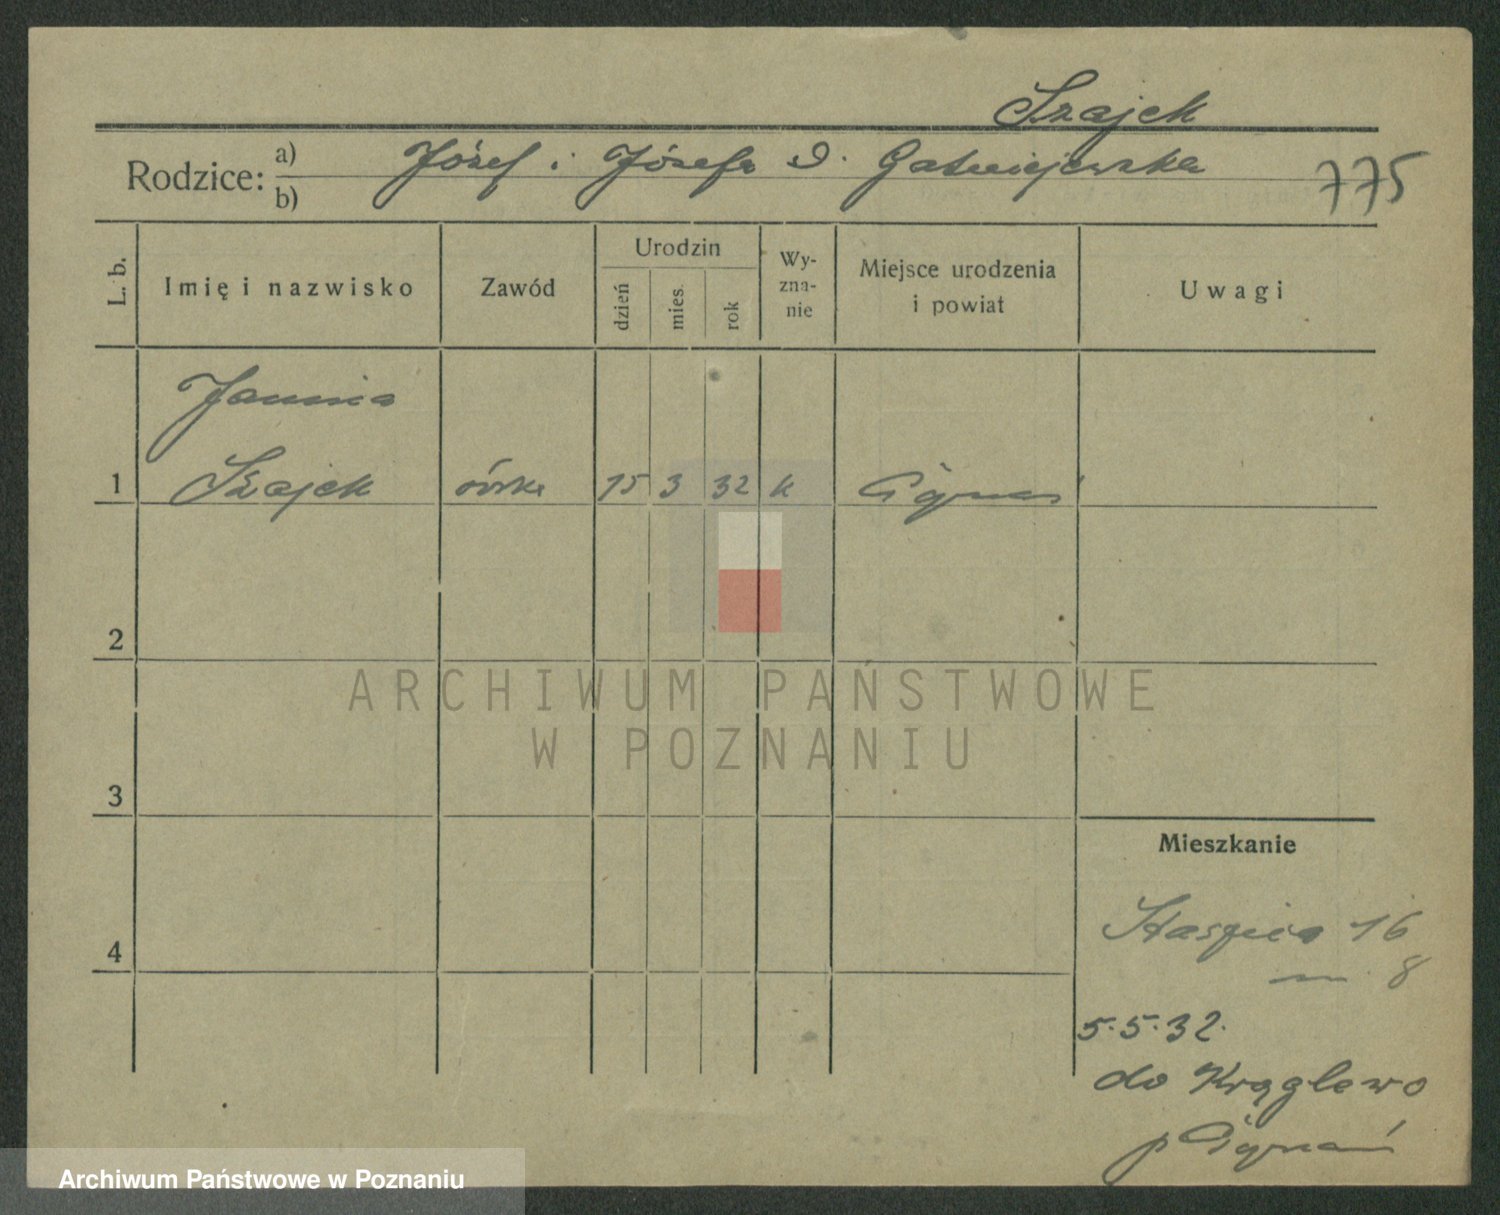 Szajek
Rodzice: a) Józef i Józefa D.
b)
775
L. b.
Imię i nazwisko
Zawód
Urodzin
dzień
mies.
rok
Wy-
zna-
nie
Miejsce urodzenia
i powiat
Uwagi
Janina
1 Szajek córka 15 3 32 k
2
3
4
ARCHIWUM PAŃSTWOWE
W POZNANIU
Mieszkanie
Staszica 16
m. 8
5.5.32.
do Krąglewo
p
Archiwum Państwowe w Poznaniu